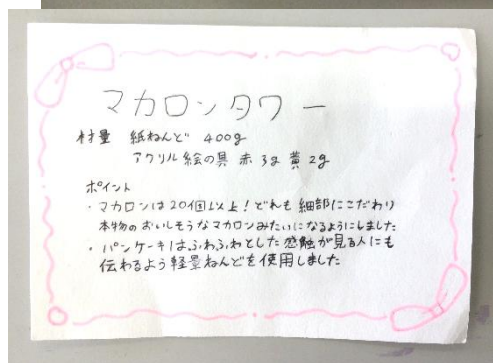 マカロンタワー
材量 紙ねんど 400g
アクリル絵の具 赤 3g 黄 2g
ポイント
・マカロンは20個以上！どれも細部にこだわり
本物のおいしそうなマカロンみたいになるようにしました
・パンケーキはふわふわとした感触が見る人にも
伝わるよう軽量ねんどを使用しました